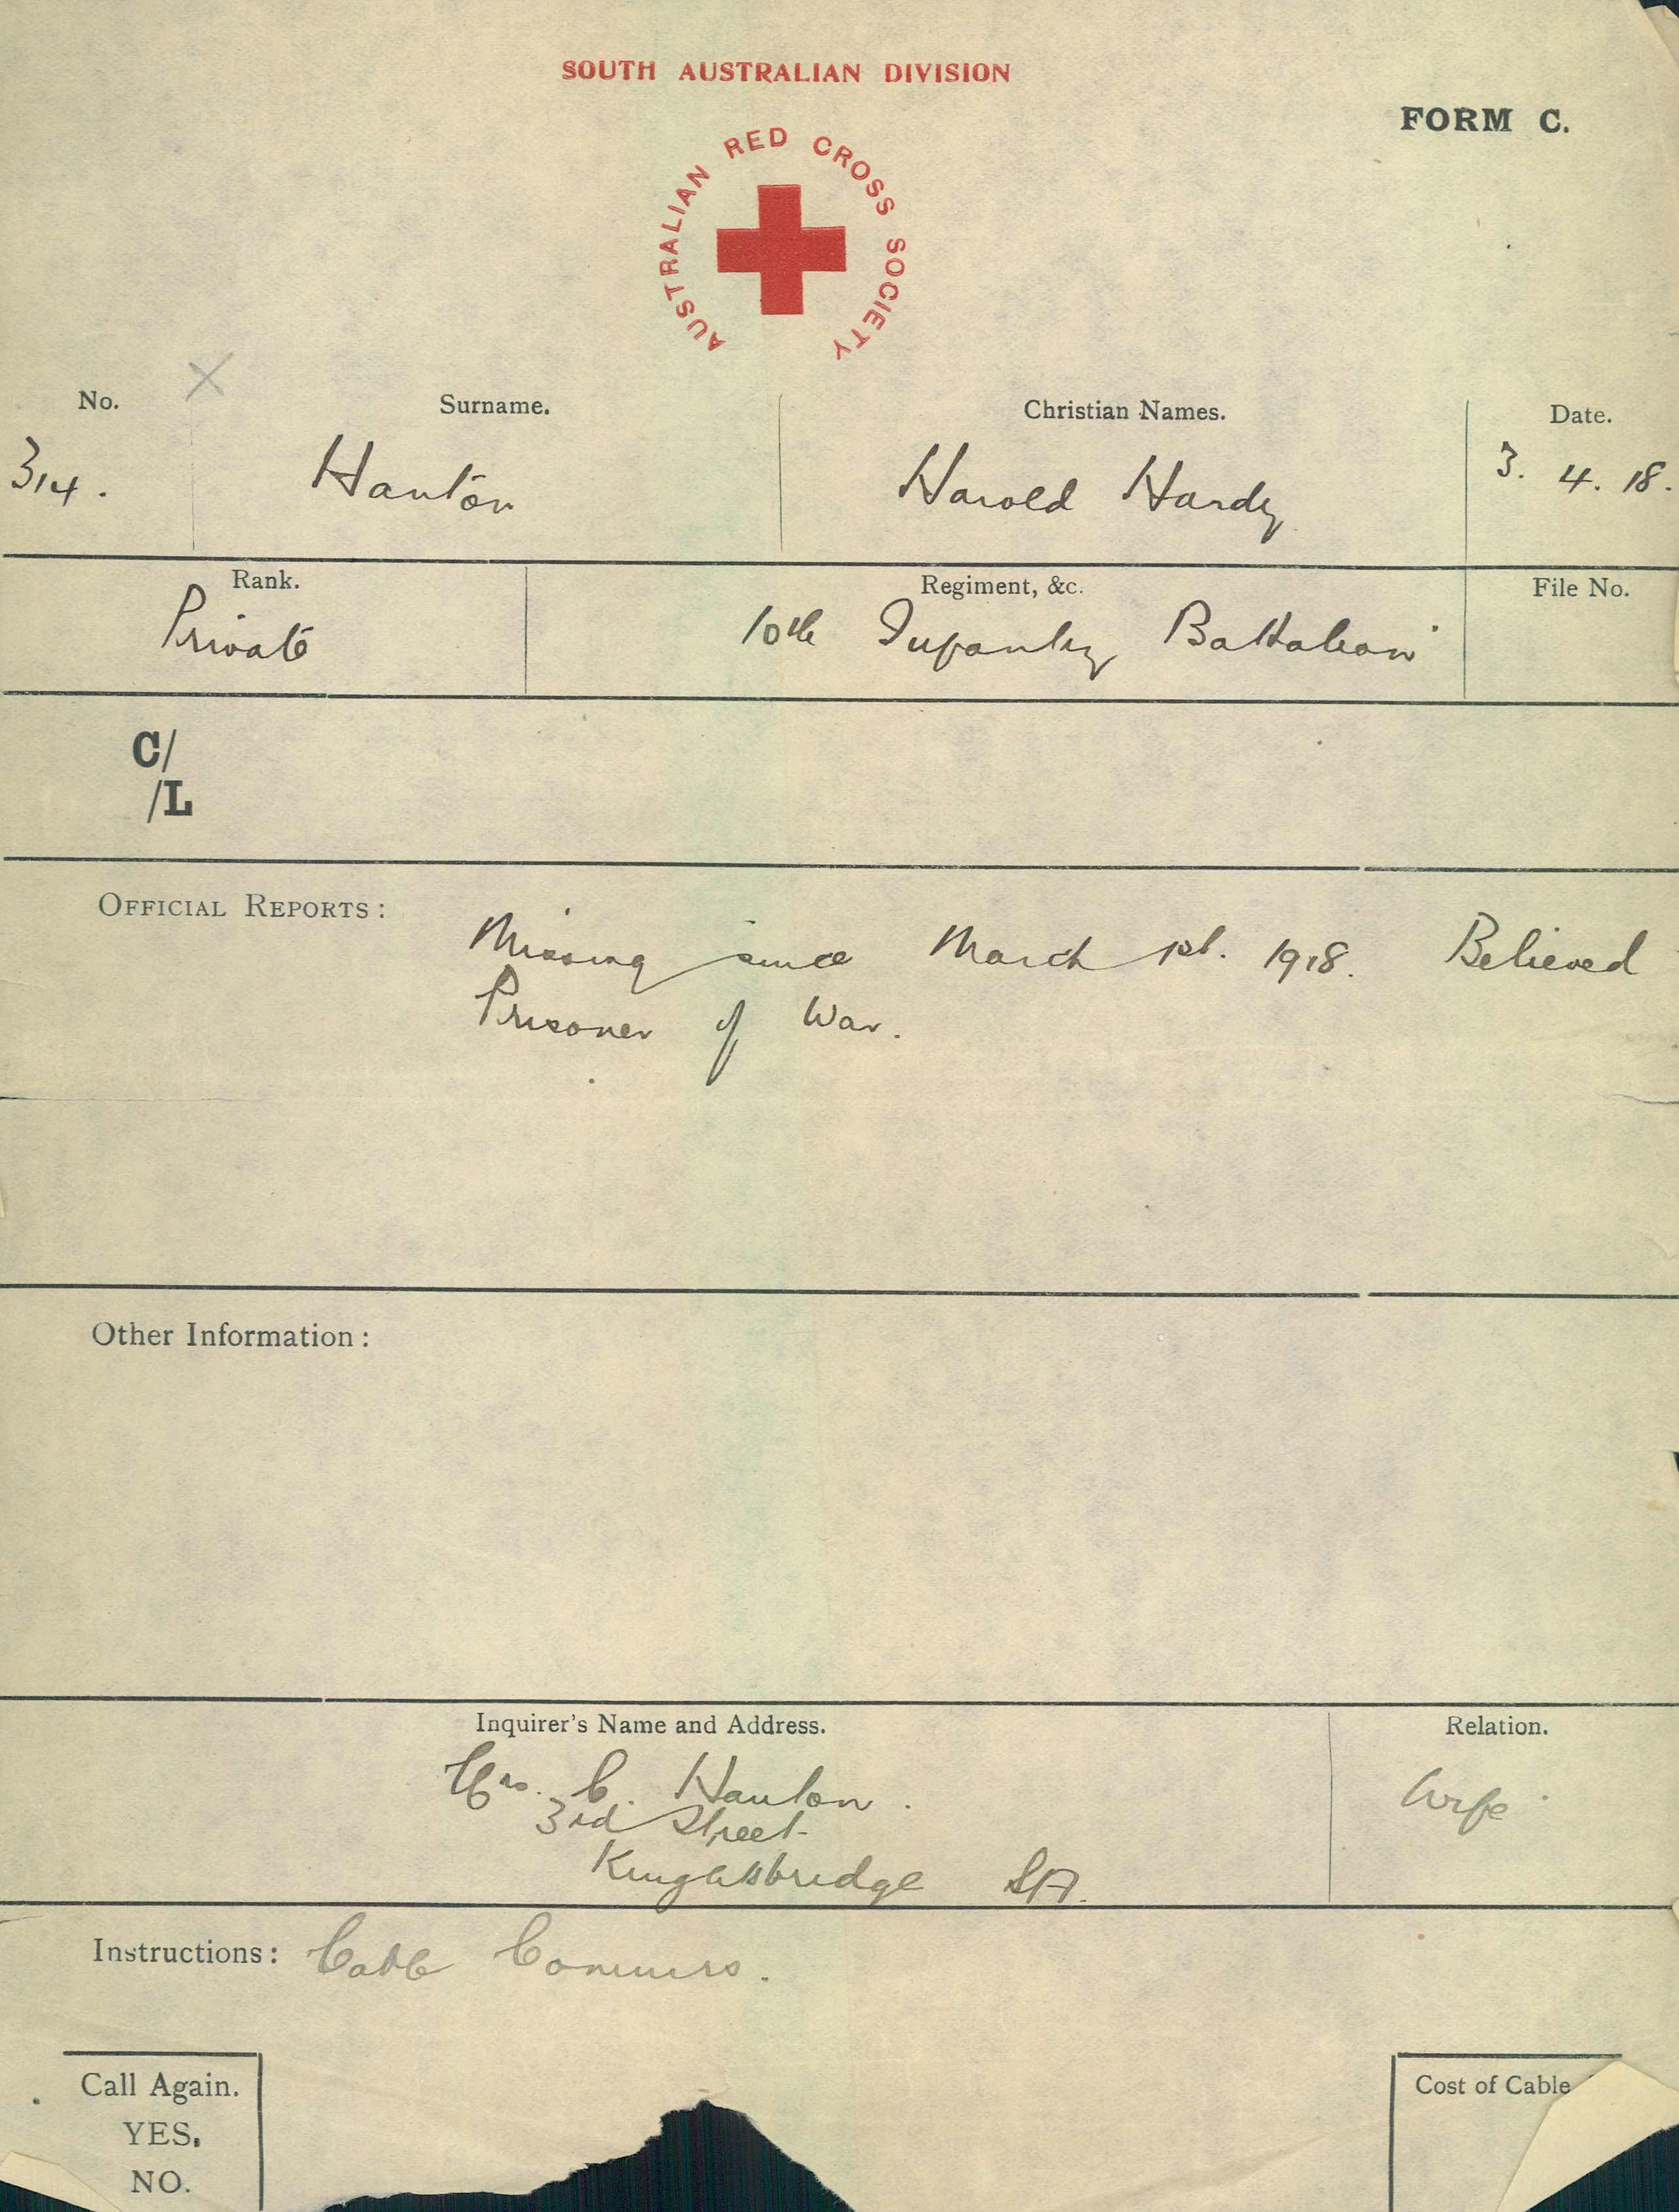 SOUTH AUSTRALIAN DIVISION
FORM C.
AUSTRALIAN RED CROSS SOCIETY
No. Surname. Christian Names. Date.
314. Hanton Harold Hardy 3. 4. 18.
Rank. Regiment, &c. File No.
Private 10th Infantry Battalion
C/
/L
OFFICIAL REPORTS: Missing since March 1st. 1918. Believed
Prisoner of War.
Other Information:
Inquirer's Name and Address. Relation.
Mrs. C. Hanton. Wife
3rd Street
Knightsbridge SA.
Instructions: Cable Commrs.
Call Again. Cost of Cable
YES.
NO.